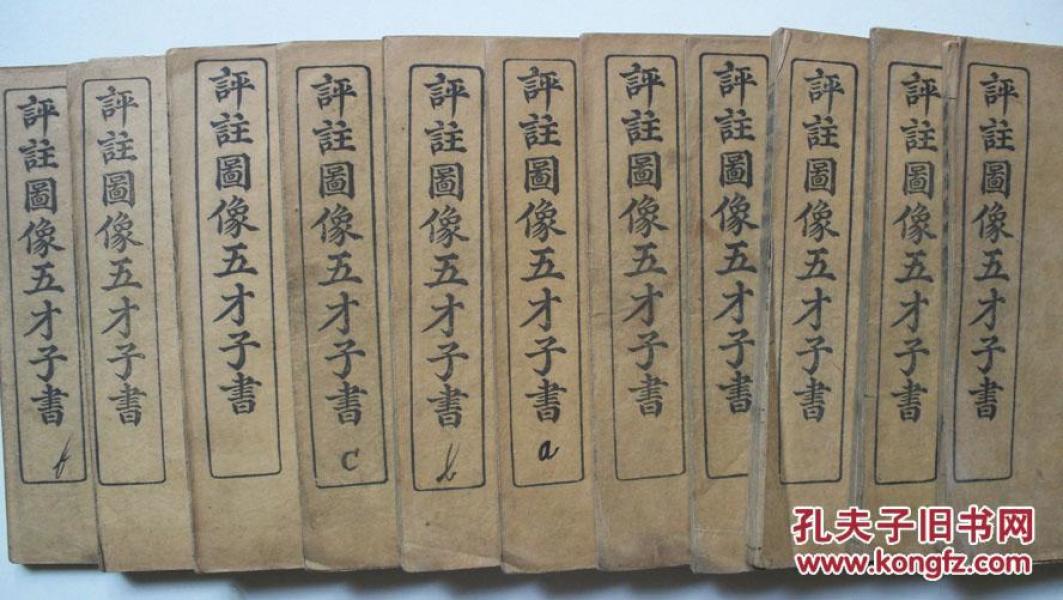 評註圖像五才子書
f
評註圖像五才子書
評註圖像五才子書
評註圖像五才子書
C
評註圖像五才子書
b
評註圖像五才子書
a
評註圖像五才子書
評註圖像五才子書
評註圖像五才子書
評註圖像五才子書
評註圖像五才子書
孔夫子旧书网
www.kongfz.com